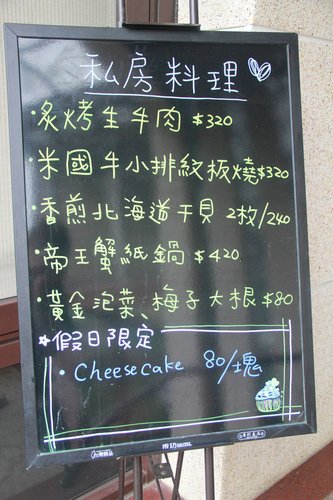 私房料理
·炙烤生牛肉 $320
·米國牛小排紋板燒$320
·香煎北海道干貝 2枚/240
·帝王蟹紙鍋 $420.
·黃金泡菜、梅子大根 $80
☆假日限定
·Cheesecake 80/塊